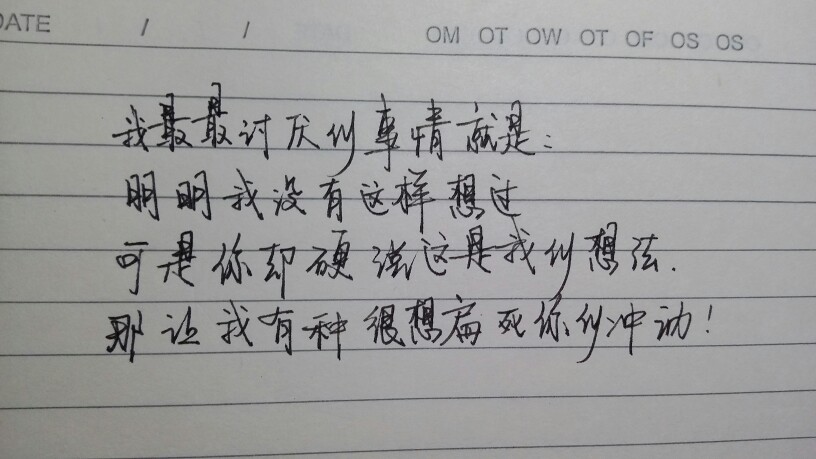 DATE / /
OM OT OW OT OF OS OS
我最最讨厌的事情就是：
明明我没有这样想过
可是你却硬说这是我的想法.
那让我有种很想扁死你的冲动！